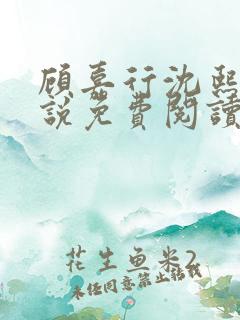 顾嘉行沈熙
說免費閱讀
花生鱼米2
未经同意禁止转载